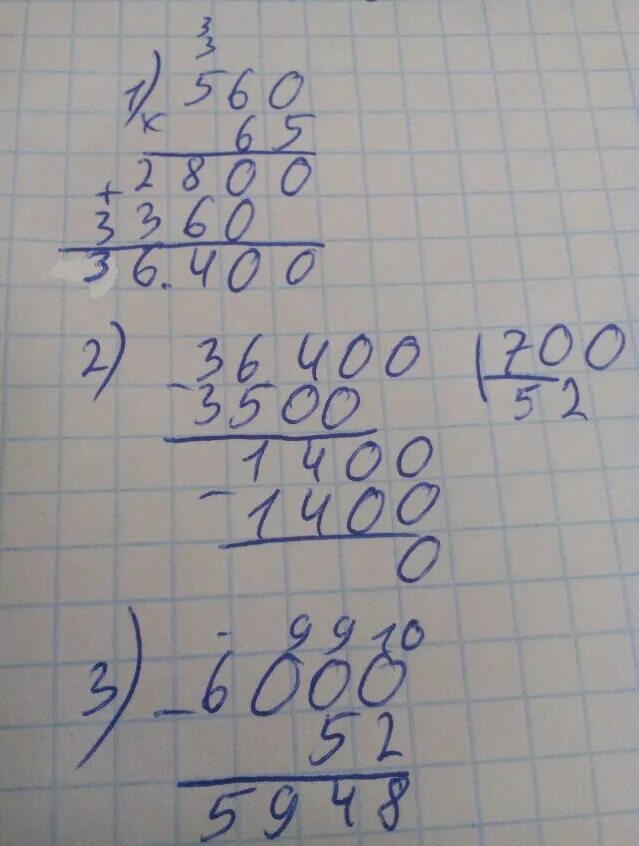 3
3
1) 560
× 65
+ 2800
3360
36.400
2) 36400 700
- 3500 52
1400
- 1400
0
3) . 9910
- 6000
52
5948